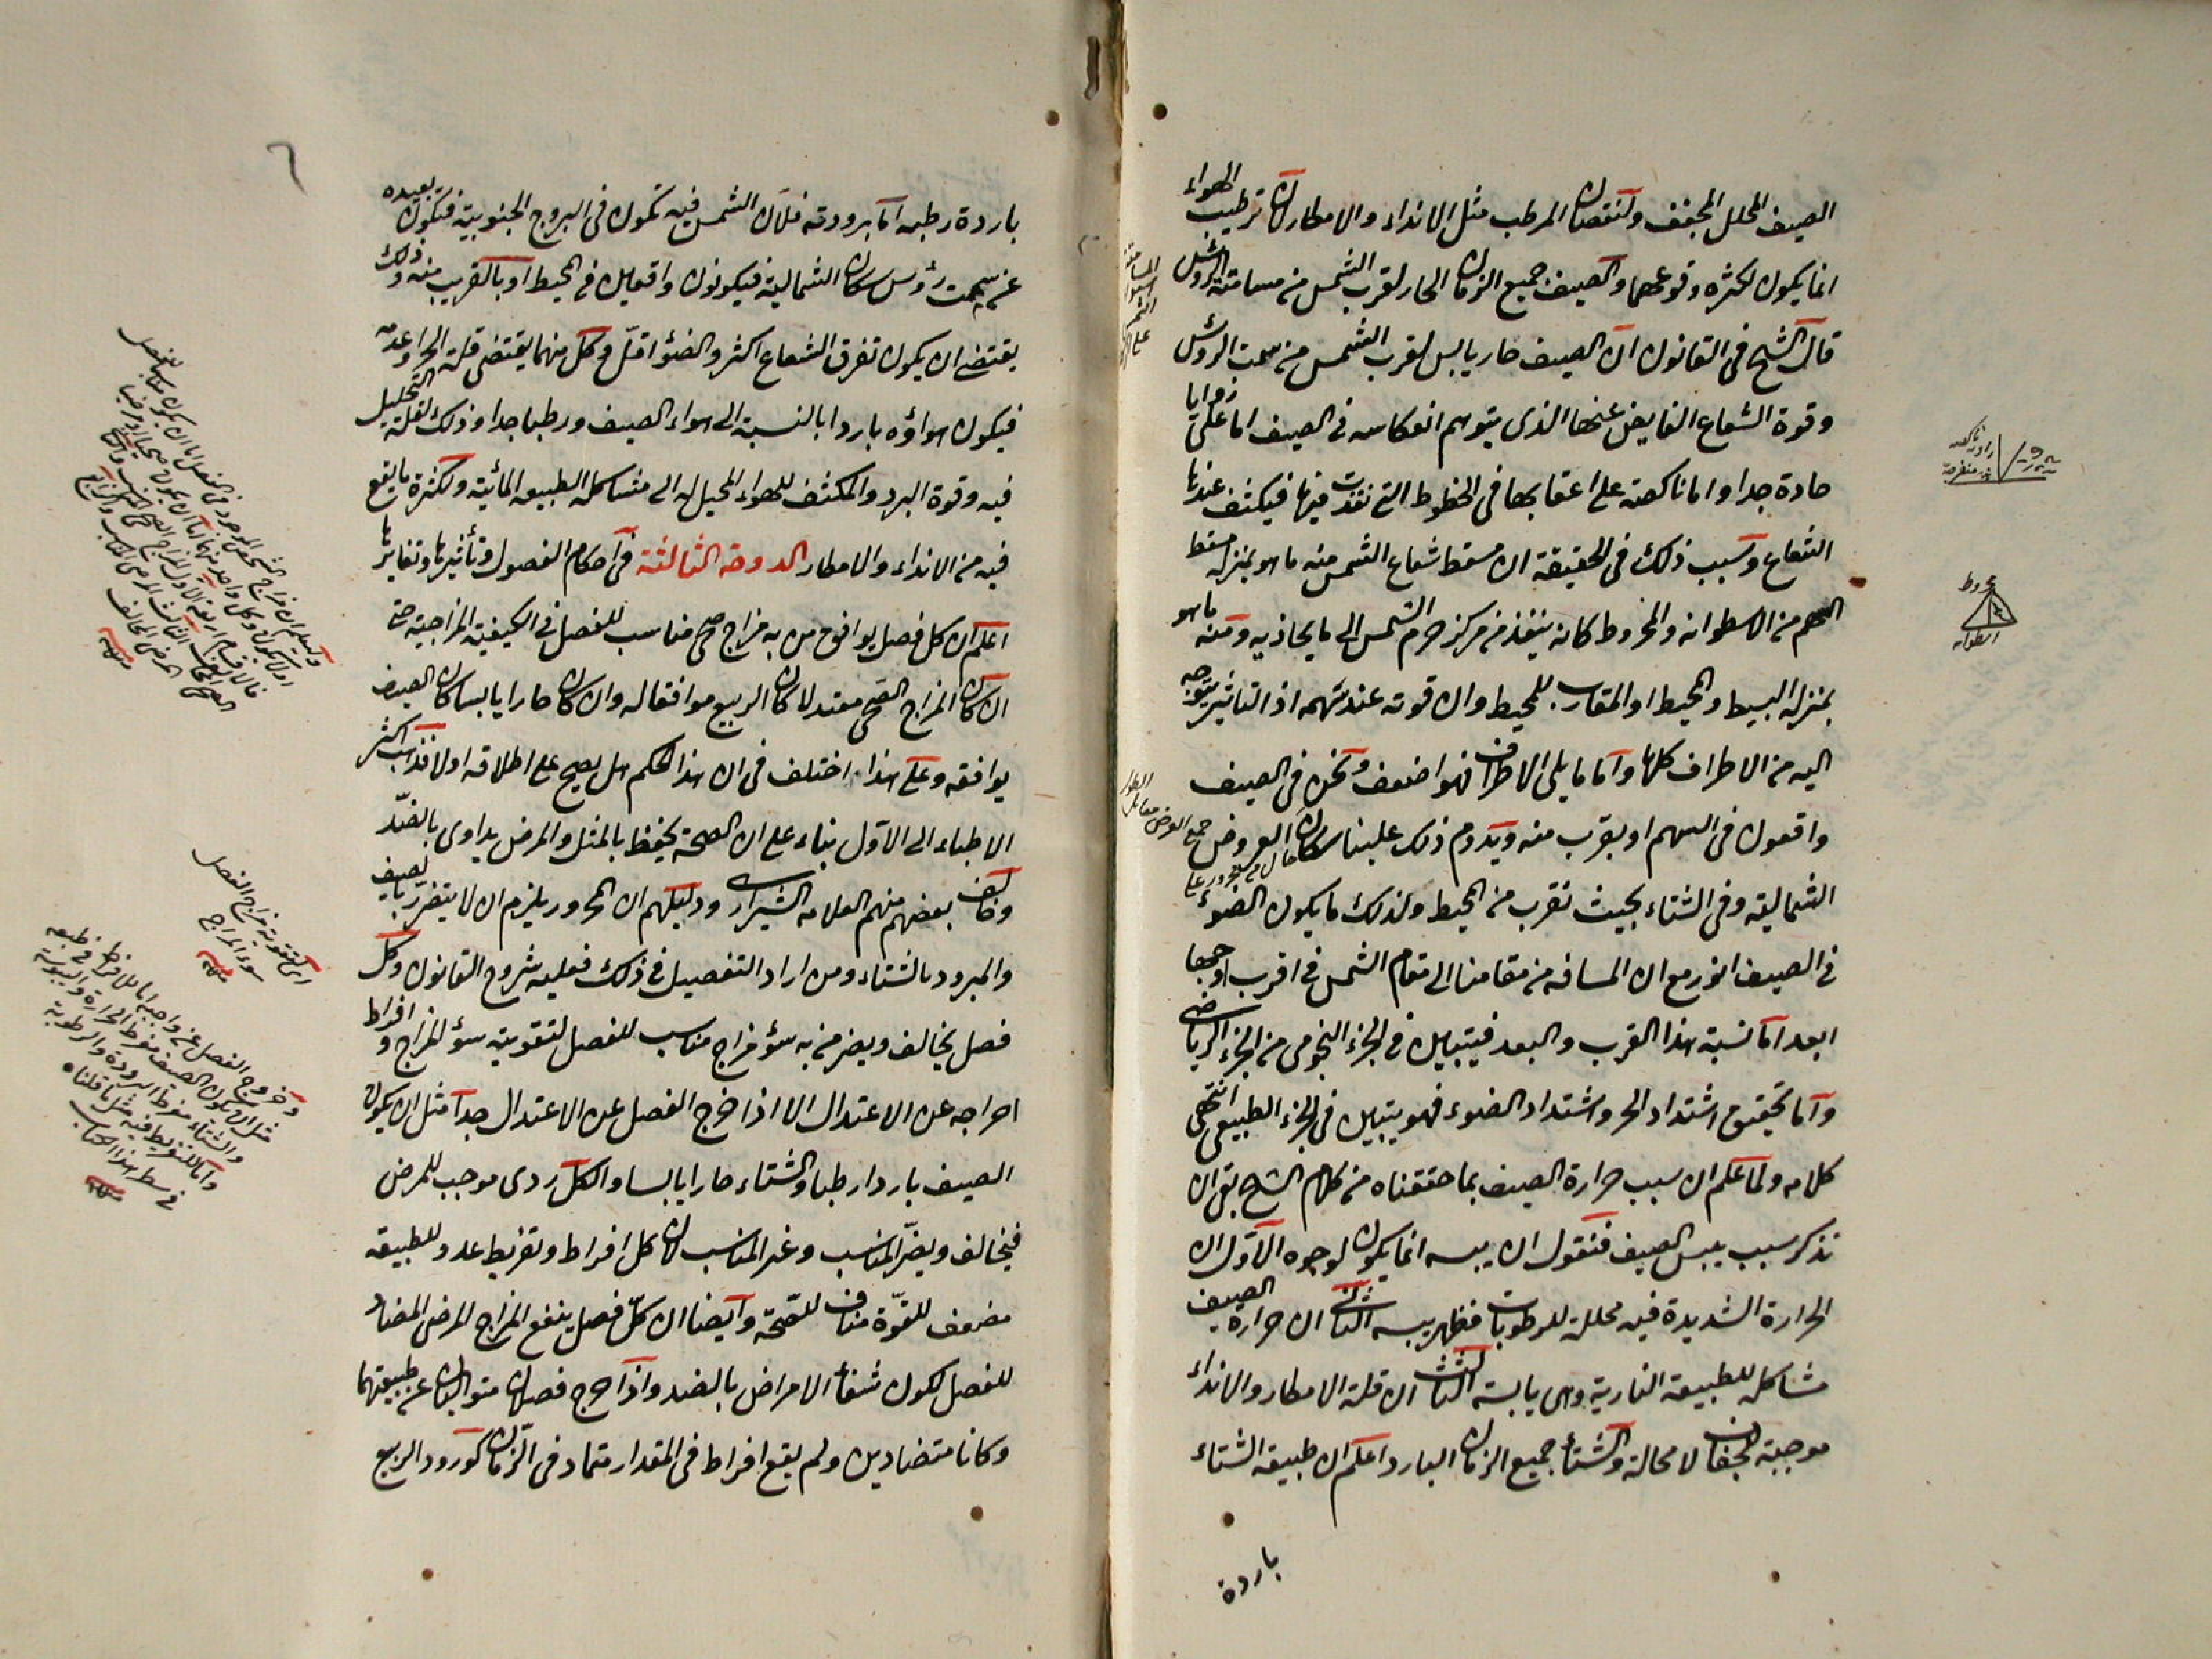 الصيف المحلل المجفف ولنقصان المرطب مثل الانداء والامطار لان ترطيب الهواء
انما يكون لكثرة وقوعهما والصيف جميع الزمان الحار لقرب الشمس من مسامتة الرؤس
قال الشيخ فى القانون ان الصيف حار يابس لقرب الشمس من سمت الرؤس
وقوة الشعاع الفايض عنها الذى يتوهم انعكاسه فى الصيف اما على زوايا
حادة جدا واما ناكصة على اعقابها فى الخطوط التى نفذت فيها فيكثف عندها
الشعاع وسبب ذلك فى الحقيقة ان مسقط شعاع الشمس منه ما هو بمنزلة مسقط
السهم من الاسطوانه والمخروط كانه ينفذ من مركز جرم الشمس الى ما يحاذيه ومنه ما هو
بمنزلة البسيط والمحيط او المقارب للمحيط وان قوته عند سهمه اذ التاثير يتوجه
اليه من الاطراف كلها واما ما يلى الاطراف فهو اضعف ونحن فى الصيف
واقعون فى السهم او بقرب منه ويدوم ذلك علينا سكان العروض
الشمالية وفى الشتاء بحيث نقرب من المحيط ولذلك ما يكون الضوء
فى الصيف انور مع ان المسافه من مقامنا الى مقام الشمس فى اقرب اوجها
ابعد اما نسبة هذا القرب والبعد فيتبين فى الجزء النجومى من الجزء الرياضى
واما تحقيق اشتداد الحر واشتداد الضوء فهو يتبين فى الجزء الطبيعى انتهى
كلامه ولما علم ان سبب حرارة الصيف بما حققناه من كلام الشيخ بقى ان
نذكر سبب يبس الصيف فنقول ان يبسه انما يكون لوجوه الاول ان
الحرارة الشديدة فيه محللة للرطوبات فظهر يبسه الثانى ان حرارة الصيف
مشاكله للطبيعة النارية وهى يابسة الثالث ان قلة الامطار والانداء
موجبة للجفاف لا محالة والشتاء جميع الزمان البارد اعلم ان طبيعة الشتاء
باردة
مخروط
اسطوانه
باردة رطبه اما برودته فلان الشمس فيه تكون فى البروج الجنوبية فتكون بعيده
عن سمت رؤس سكان الشمالية فيكونون واقعين فى المحيط او بالقريب منه وذلك
يقتضى ان يكون تفرق الشعاع اكثر والضوء اقل وكل منهما يقتضى قلة الحر وعدمه
فيكون هواؤه باردا بالنسبة الى هواء الصيف ورطبا جدا وذلك لقلة التحليل
فيه وقوة البرد والمكثف للهواء المحيل له الى مشاكلة الطبيعة المائية ولكثرة ما يقع
فيه من الانداء والامطار الدوحة الثالثة فى احكام الفصول وتأثيرها وتغايرها
اعلم ان كل فصل يوافق من به مزاج صحى مناسب للفصل فى الكيفية المزاجية حتى
ان كان المزاج الصحى معتدلا كان الربيع موافقا له وان كان حارا يابسا كان الصيف
يوافقه وعلى هذا اختلف فى ان هذا الحكم هل يصح على اطلاقه اولا فذهب اكثر
الاطباء الى الاول بناء على ان الصحة يحفظ بالمثل والمرض يداوى بالضد
وخالف بعضهم منهم العلامه الشيرازى ودليلهم ان المحرور يلزم ان لا يتضرر بالصيف
والمبرود بالشتاء ومن اراد التفصيل فى ذلك فعليه شروح القانون وكل
فصل يخالف ويضر من به سوء مزاج مناسب للفصل لتقوية سوء المزاج وافراط
اخراجه عن الاعتدال الا اذا خرج الفصل عن الاعتدال جدا مثل ان يكون
الصيف باردا رطبا والشتاء حارا يابسا والكل ردى موجب للمرض
فيخالف ويضر المناسب وغير المناسب لان كل افراط وتفريط عدو للطبيعه
مضعف للقوة مناف للصحة وايضا ان كل فصل ينفع المزاج المرضى المضاد
للفصل لكون شفاء الامراض بالضد واذا خرج فصلان متواليان عن طبيعتهما
وكانا متضادين ولم يقع افراط فى المقدار متماد فى الزمان كورود الربيع
اى لتقوية مزاج الفصل
سوء المزاج
منه